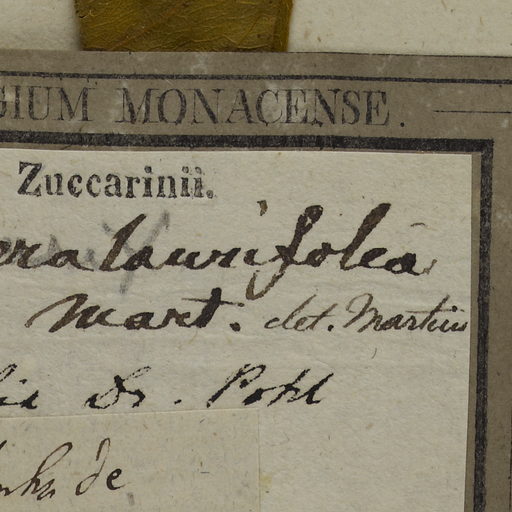 GIUM MONACENSE.
Zuccarinii.
era laurifolia
Mart. det. Martius
Dr. Pohl
de